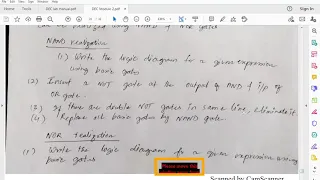 Home Tools DEC lab manual.pdf DEC Module 2.pdf × Sign In
NAND Realization
(1) Write the logic diagram for a given expression
using basic gates
(2) Insert a NOT gate at the output of AND & I/P of
OR gate.
(3) If there are double NOT gates in same line, eliminate it
(4) Replace all basic gates by NAND gate
NOR Realization
(1) Write the logic diagram for a given expression using
basic gates
Scanned by CamScanner